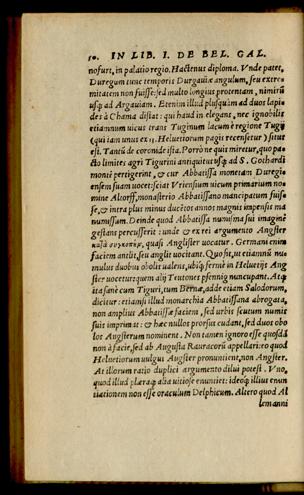 50. IN LIB. I. DE BEL. GAL.
nofurt, in palatio regio. Hactenus diploma. Vnde patet,
Duregum tunc temporis Durgauiæ angulum, seu extre-
mitatem non fuisse: sed multo longius protentam, nimirũ
usq; ad Argauiam. Etenim illud plusquàm ad duos lapi-
des à Chama distat: qui haud in elegans, nec ignobilis
etiamnum uicus trans Tuginum lacum è regione Tugij
(qui iam unus ex 13. Heluetiorum pagis recensetur) situs
est. Tantũ de coronide ista. Porrò ne quis miretur, quo pa-
cto limites agri Tigurini antiquitus usq; ad S. Gothardi
monte pertigerint, & cur Abbatissa monetam Duregi-
ensem suam uocet: sciat Vriensium uicum primarium no-
mine Altorff, monasterio Abbatissano mancipatum fuis-
se, & intra plus minus ducẽtos annos magnis impensis mã
numissum. Deinde quod Abbatissa numisma sui imaginẽ
gestans percusserit: unde & ex rei argumento Angster
κατὰ συγκοπὴν, quasi Anglister uocatur. Germani enim
faciem antlit, seu anglit uocitant. Quo fit, ut etiamnũ nu-
mulus duobus obolis ualens, ubiq; fermè in Heluetijs Ang
ster uocetur: quem alij Teutones pfennig nuncupant. Atq;
ita sanè cum Tiguri, tum Bernæ, adde etiam Salodorum,
dicitur: etiamsi illud monarchia Abbatissana abrogata,
non amplius Abbatissæ faciem, sed urbis scutum numis
suis imprimat: & hæc nullos prorsus cudant, sed duos obo
los Angsterum nominent. Non tamen ignoro esse quosdã
non à facie, sed ab Augusta Rauracorũ appellari: eo quod
Heluetiorum uulgus Augster pronuntient, non Angster.
At illorum ratio duplici argumento dilui potest. Vno,
quod illud pleraq; alia uitiose enuntiet: ideoq; illius enun
tiationem non esse oraculum Delphicum. Altero quod Al
lemanni